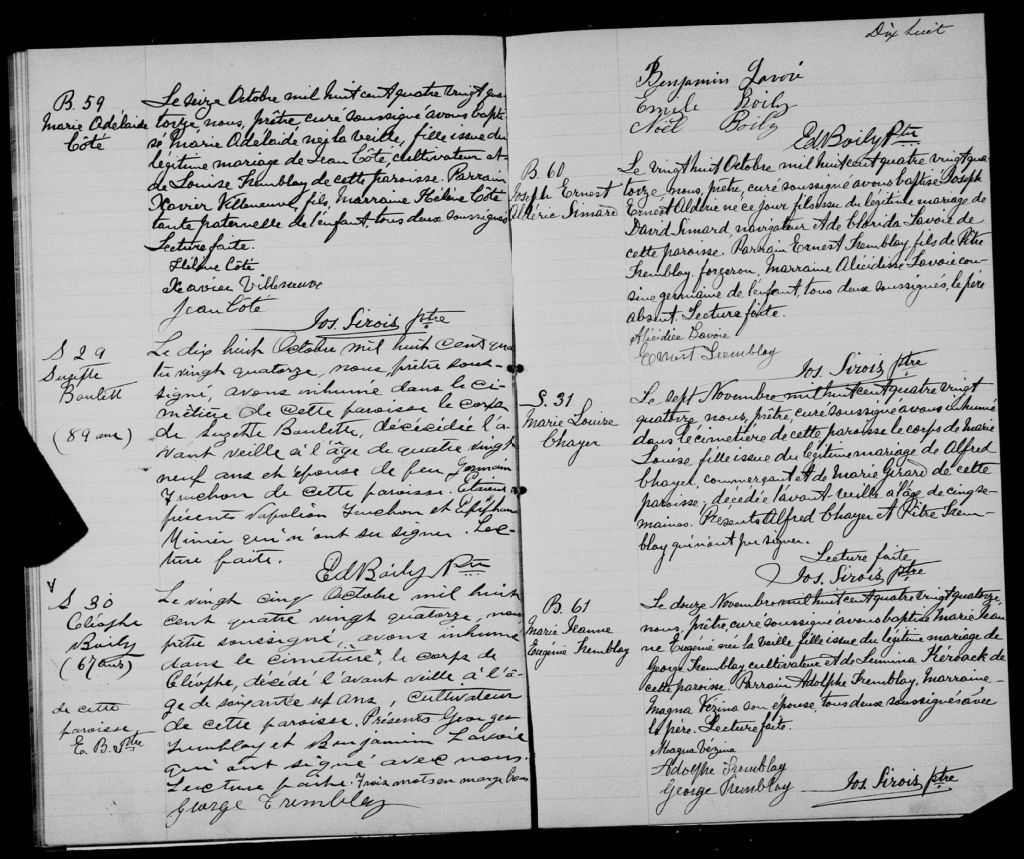 B. 59
Marie Adélaïde
Côté
Le seize Octobre mil huit cent quatre vingt qua-
torze, nous, prêtre, curé soussigné avons bapti-
sé Marie Adélaïde née la veille, fille issue du
légitime mariage de Jean Côté, cultivateur et
de Louise Tremblay de cette paroisse. Parrain
Xavier Villeneuve, fils, Marraine Hélène Côté
tante paternelle de l'enfant, tous deux soussignés
Lecture faite.
Hélène Côté
Xavier Villeneuve
Jean Côté
Jos. Sirois ptre
S 29
Suzette
Boulett
(89 ans)
Le dix huit Octobre mil huit cent qua
tre vingt quatorze, nous, prêtre sous-
signé, avons inhumé dans le ci-
metière de cette paroisse le corps
de Suzette Boulette, décédée l'a-
vant veille à l'âge de quatre vingt
neuf ans et épouse de feu Germain
Truchon de cette paroisse. Etaient
présents Napoléon Truchon et
qui n'ont su signer. Lec-
ture faite.
Ed Boily Ptre
S 30
Cléophe
Boily
(67 ans)
de cette
paroisse
E. B. Ptre
Le vingt cinq Octobre mil huit
cent quatre vingt quatorze, nous
prêtre soussigné, avons inhumé
dans le cimetière, le corps de
Cléophe, décédé l'avant veille à l'â-
ge de soixante sept ans, cultivateur
de cette paroisse. Présents Georges
Tremblay et Benjamin Lavoie
qui ont signé avec nous.
Lecture faite. Trois mots en marge bons
George Tremblay
Dix huit
Benjamin Lavoie
Emile Boily
Noël Boily
Ed Boily Ptre
B. 60
Joseph Ernest
Aldéric Simard
Le vingt huit Octobre mil huit cent quatre vingt qua-
torze, nous, prêtre, curé soussigné avons baptisé Joseph
Ernest Aldéric né ce jour fils issu du légitime mariage de
David Simard, navigateur et de Clorida Lavoie de
cette paroisse. Parrain Ernest Tremblay, fils de Pitre
Tremblay, forgeron, Marraine Alicédisse Lavoie cou-
sine germaine de l'enfant, tous deux soussignés, le père
absent Lecture faite.
Alicédice Lavoie
Ernest Tremblay
Jos. Sirois ptre
S. 31
Marie Louise
Chayer
Le sept Novembre mil huit cent quatre vingt
quatorze, nous, prêtre, curé soussigné avons inhumé
dans le cimetière de cette paroisse le corps de Marie
Louise, fille issue du légitime mariage de Alfred
Chayer, commerçant et de Marie Girard de cette
paroisse, décédée l'avant veille à l'âge de cinq se-
maines. Présents Alfred Chayer et Pitre Trem-
blay qui n'ont pu signer.
Lecture faite
Jos. Sirois ptre
B. 61
Marie Jeanne
Eugénie Tremblay
Le douze Novembre mil huit cent quatre vingt quatorze,
nous, prêtre, curé soussigné avons baptisé Marie Jean
ne Eugénie née la veille, fille issue du légitime mariage de
George Tremblay cultivateur et de Lumina Kéroack de
cette paroisse. Parrain Adolphe Tremblay, Marraine
Magna Vézina son épouse, tous deux soussignés avec
le père. Lecture faite.
Magna Vézina
Adolphe Tremblay
George Tremblay
Jos. Sirois ptre